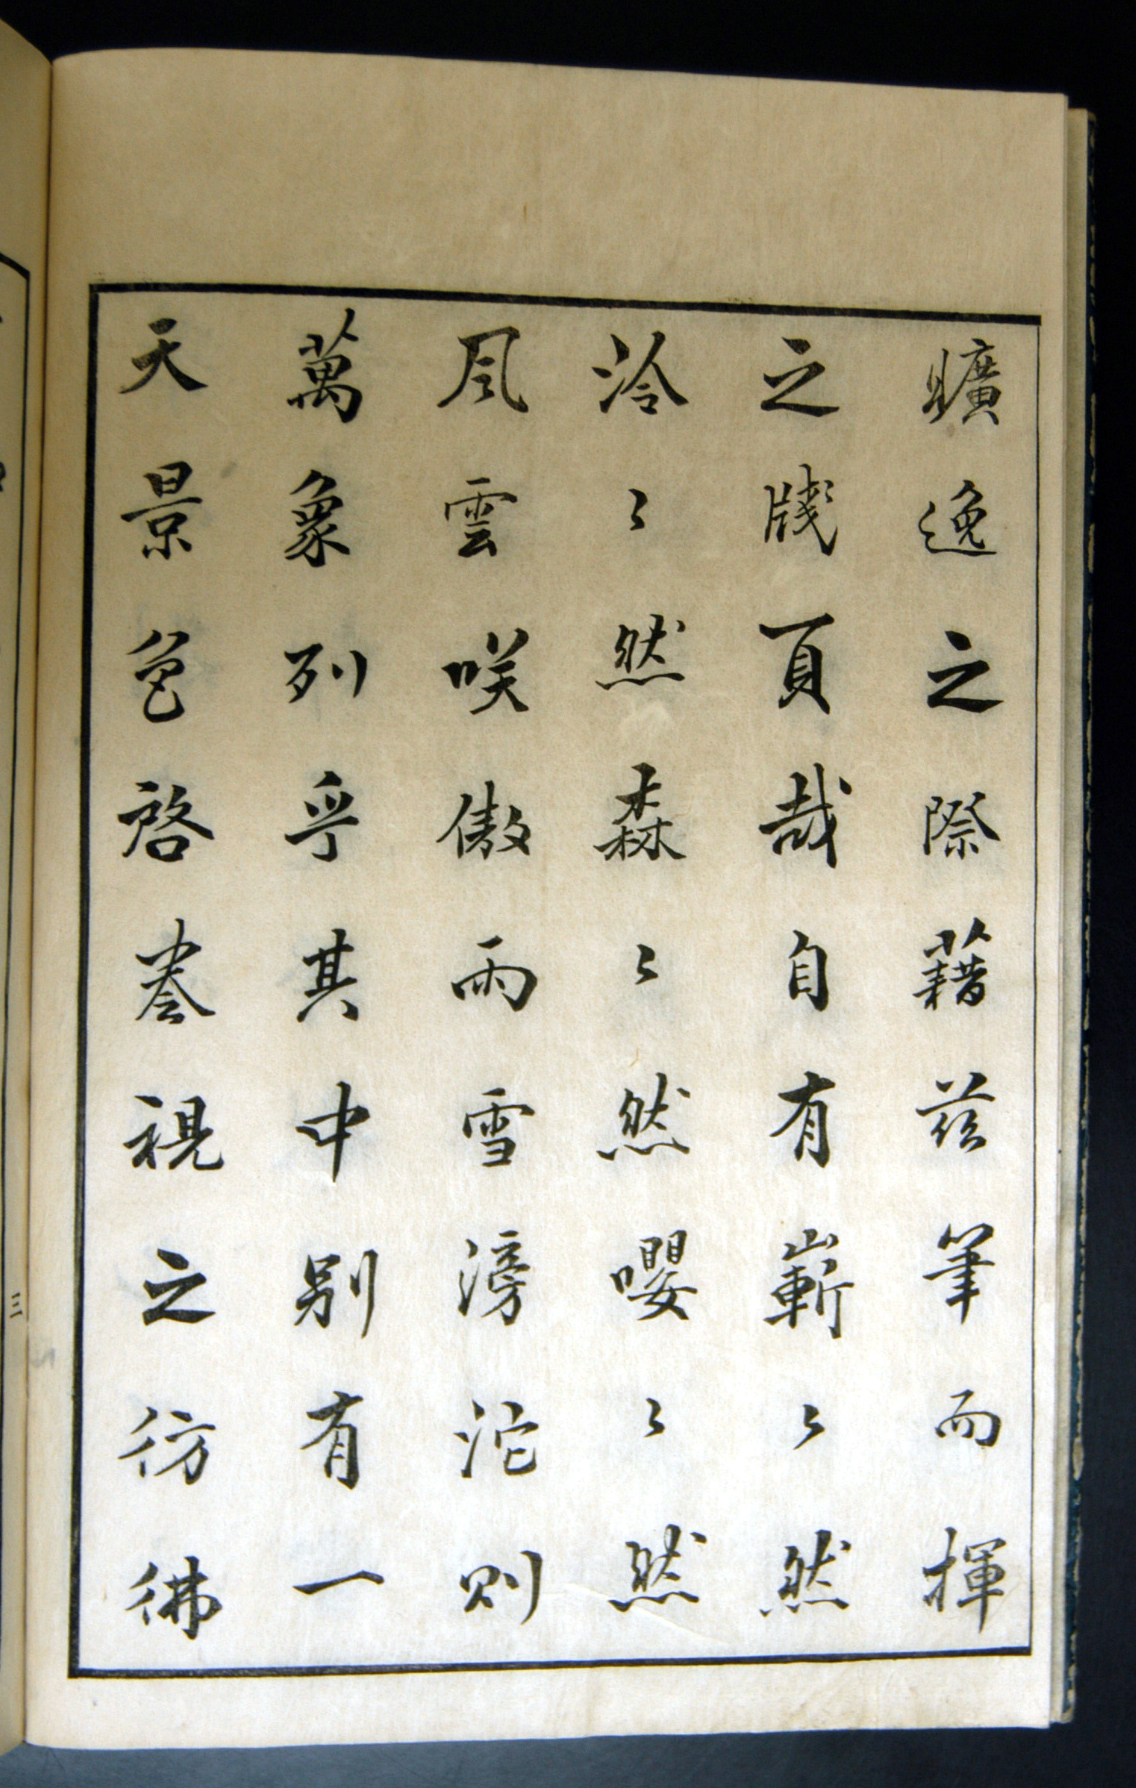 曠逸之際藉茲筆而揮
之牋頁哉自有嶄〻然
泠〻然森〻然嚶〻然
風雲咲傲雨雪滂沱則
萬象列乎其中別有一
天景色啓卷視之彷彿
三